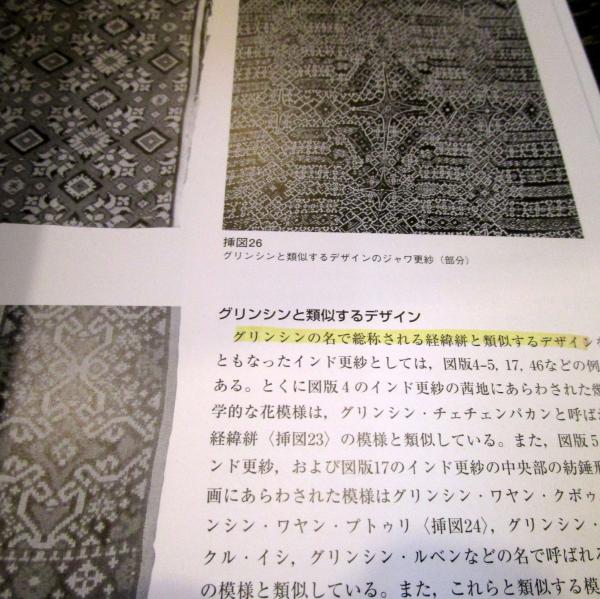 挿図26
グリンシンと類似するデザインのジャワ更紗（部分）
グリンシンと類似するデザイン
グリンシンの名で総称される経緯絣と類似するデザイン
ともなったインド更紗としては，図版4-5, 17, 46などの例
ある。とくに図版4のインド更紗の茜地にあらわされた
学的な花模様は，グリンシン・チェチェンパカンと呼ば
経緯絣〈挿図23〉の模様と類似している。また，図版5
ンド更紗，および図版17のインド更紗の中央部の紡錘
画にあらわされた模様はグリンシン・ワヤン・クボゥ
ンシン・ワヤン・プトゥリ〈挿図24〉，グリンシン・
クル・イシ，グリンシン・ルベンなどの名で呼ばれ
の模様と類似している。また，これらと類似する模